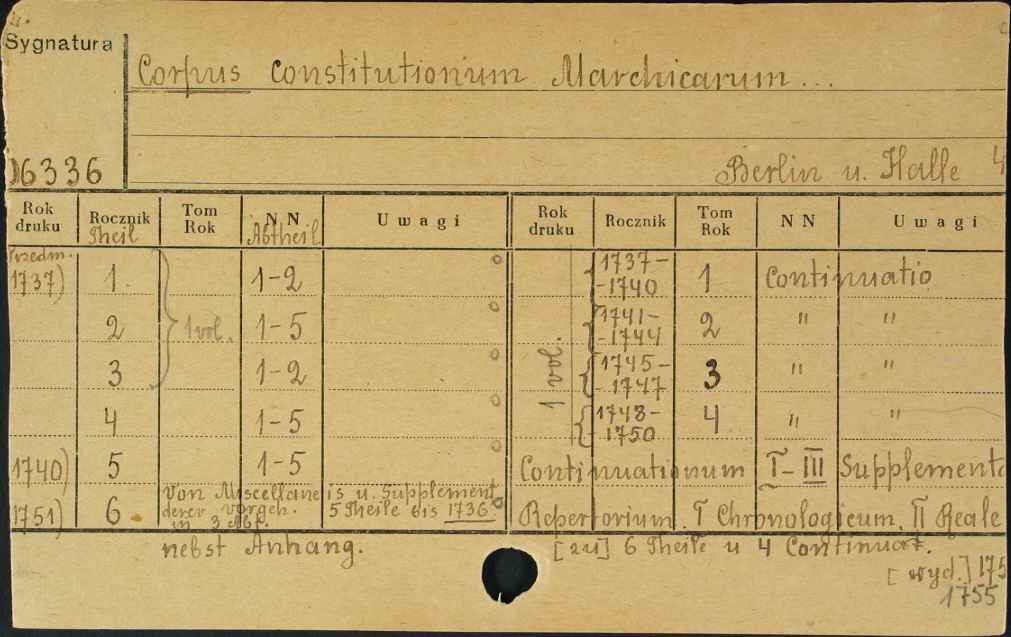 Sygnatura
Corpus Constitutionum Marchicarum...
6336
Berlin u. Halle 4
Rok druku Rocznik Theil Tom Rok N N Abtheil. Uwagi Rok druku Rocznik Tom Rok N N Uwagi
Przedm. 1737) 1. 1-2 1737- -1740 1 Continuatio
2 1 vol. 1-5 1741- -1744 2 " "
3 1-2 1 vol. 1745- -1747 3 " "
4 1-5 1748- -1750 4 " "
1740) 5 1-5 Continuationum I-III Supplementa
1751) 6 Von Miscellaneis u. Supplement. derer vorgeh. 5 Theile bis 1736 in 3 Abt. Repertorium. I Chronologicum. II Reale
nebst Anhang. [zu] 6 Theile u 4 Continuat.
[wyd.] 175
1755